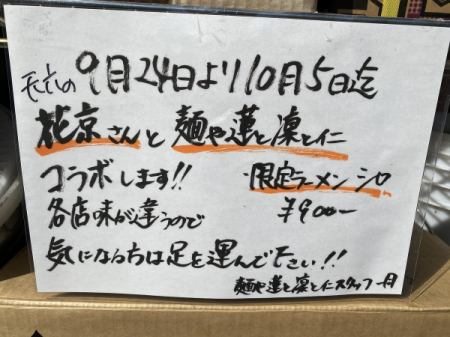 9月24日より10月5日迄
花京さんと麺や蓮と凜と仁
コラボします!! 限定ラーメンシロ
各店味が違うので ¥900-
気になる方は足を運んで下さい!!
麺や蓮と凜と仁スタッフ一同